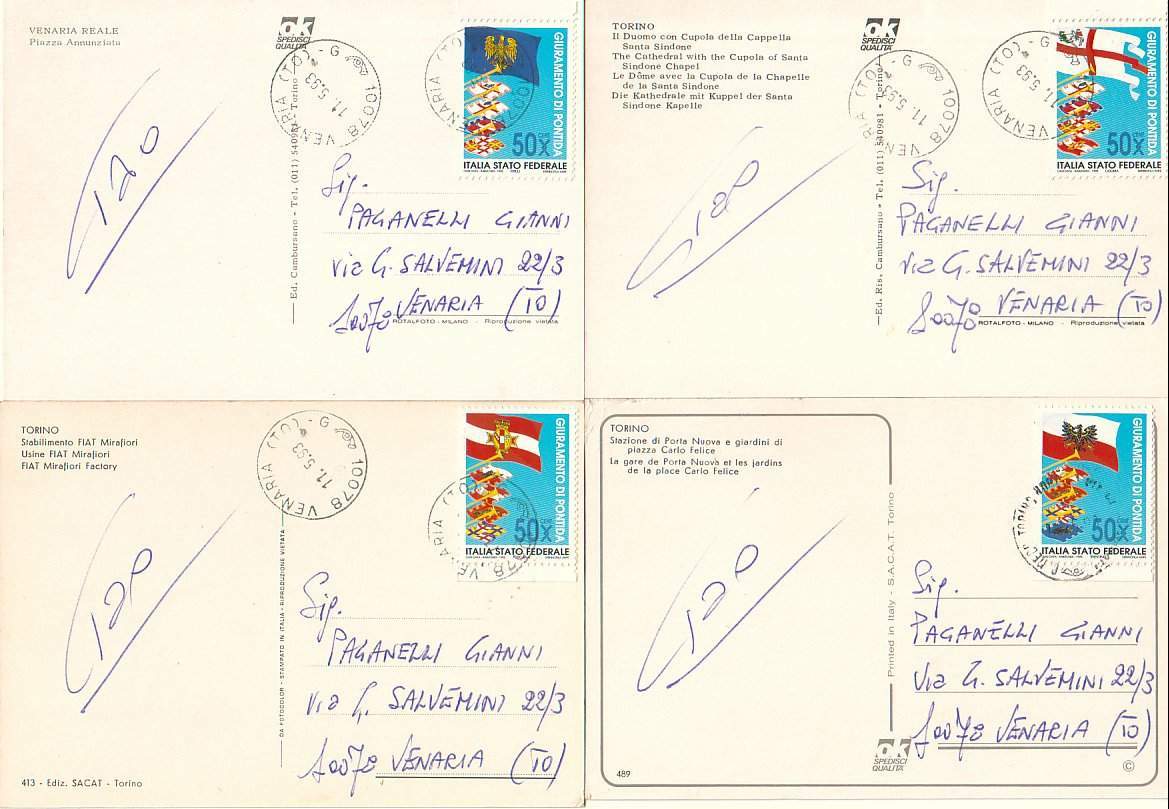 VENARIA REALE
Piazza Annunziata
ok
SPEDISCI
QUALITÀ
10078 VENARIA (TO) - G
11.5.93
VENARIA (TO)
GIURAMENTO DI PONTIDA
50 CENT
ITALIA STATO FEDERALE
Ciao
Ed. Cambursano - Tel. (011) 540981 - Torino
Sig.
PAGANELLI GIANNI
via G. SALVEMINI 22/3
10078 VENARIA (TO)
ROTALFOTO - MILANO - Riproduzione vietata
TORINO
Il Duomo con Cupola della Cappella
Santa Sindone
The Cathedral with the Cupola of Santa
Sindone Chapel
Le Dôme avec la Cupola de la Chapelle
de la Santa Sindone
Die Kathedrale mit Kuppel der Santa
Sindone Kapelle
ok
SPEDISCI
QUALITÀ
10078 VENARIA (TO) - G
11.5.93
VENARIA (TO) - G
11.5.93
GIURAMENTO DI PONTIDA
50 CENT
ITALIA STATO FEDERALE
Ciao
Ed. Ris. Cambursano - Tel. (011) 540981 - Torino
Sig.
PAGANELLI GIANNI
via G. SALVEMINI 22/3
10070 VENARIA (TO)
ROTALFOTO - MILANO - Riproduzione vietata
TORINO
Stabilimento FIAT Mirafiori
Usine FIAT Mirafiori
FIAT Mirafiori Factory
10078 VENARIA (TO) - G
11.5.93
VENARIA (TO)
GIURAMENTO DI PONTIDA
50 CENT
ITALIA STATO FEDERALE
Ciao
DA FOTOCOLOR - STAMPATO IN ITALIA - RIPRODUZIONE VIETATA
Sig.
PAGANELLI GIANNI
via G. SALVEMINI 22/3
10078 VENARIA (TO)
413 - Ediz. SACAT - Torino
TORINO
Stazione di Porta Nuova e giardini di
piazza Carlo Felice
La gare de Porta Nuova et les jardins
de la place Carlo Felice
GIURAMENTO DI PONTIDA
50 CENT
ITALIA STATO FEDERALE
TORINO
Ciao
Printed in Italy - S.A.C.A.T. Torino
Sig.
PAGANELLI GIANNI
via G. SALVEMINI 22/3
10078 VENARIA (TO)
ok
SPEDISCI
QUALITÀ
489
©